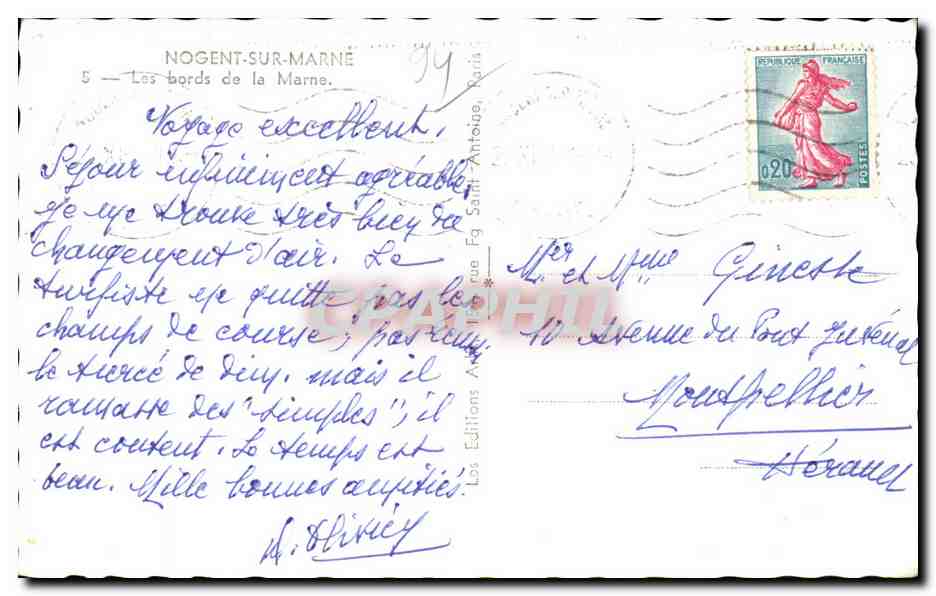 NOGENT-SUR-MARNE
5 — Les bords de la Marne.
94
Voyage excellent.
Séjour infiniment agréable,
je me trouve très bien du
changement d'air. Le
turfiste ne quitte pas les
champs de course; pas
le tiercé de dim. mais il
ramasse des "simples", il
est content. Le temps est
beau. Mille bonnes amitiés.
A. Olivier
Les Editions rue Fg Saint-Antoine, Paris
REPUBLIQUE FRANÇAISE
0,20
POSTES
Mer et Mme Gineste
10 Avenue du Pont Juvénal
Montpellier
Hérault
CPAPHIL